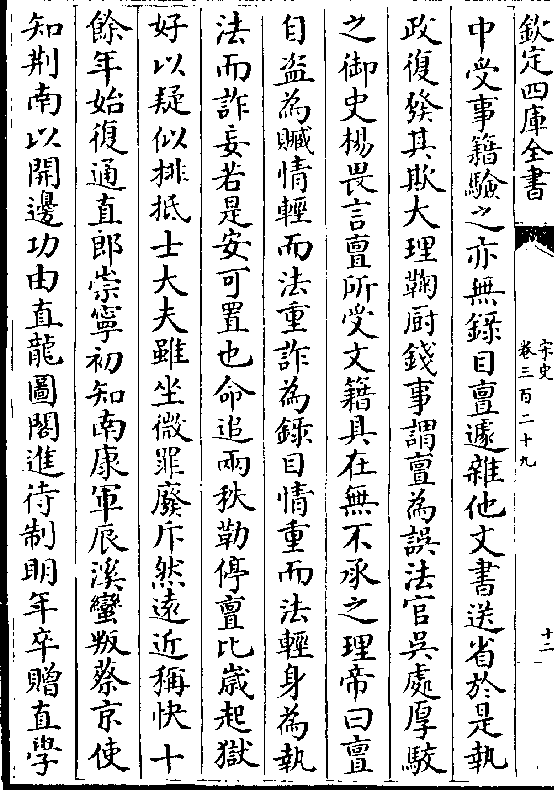 欽定四庫全書
宋史
卷三百二十九
十二
中受事籍驗之亦無錄目亶遽雜他文書送省於是執
政復發其欺大理鞫厨錢事謂亶為誤法官吳處厚駮
之御史楊畏言亶所受文籍具在無不承之理帝曰亶
自盜為贓情輕而法重詐為錄目情重而法輕身為執
法而詐妄若是安可置也命追兩秩勒停亶比歳起獄
好以疑似排抵士大夫雖坐微罪廢斥然逺近稱快十
餘年始復通直郎崇寧初知南康軍辰溪蠻叛蔡京使
知荆南以開邊功由直龍圖閣進待制明年卒贈直學